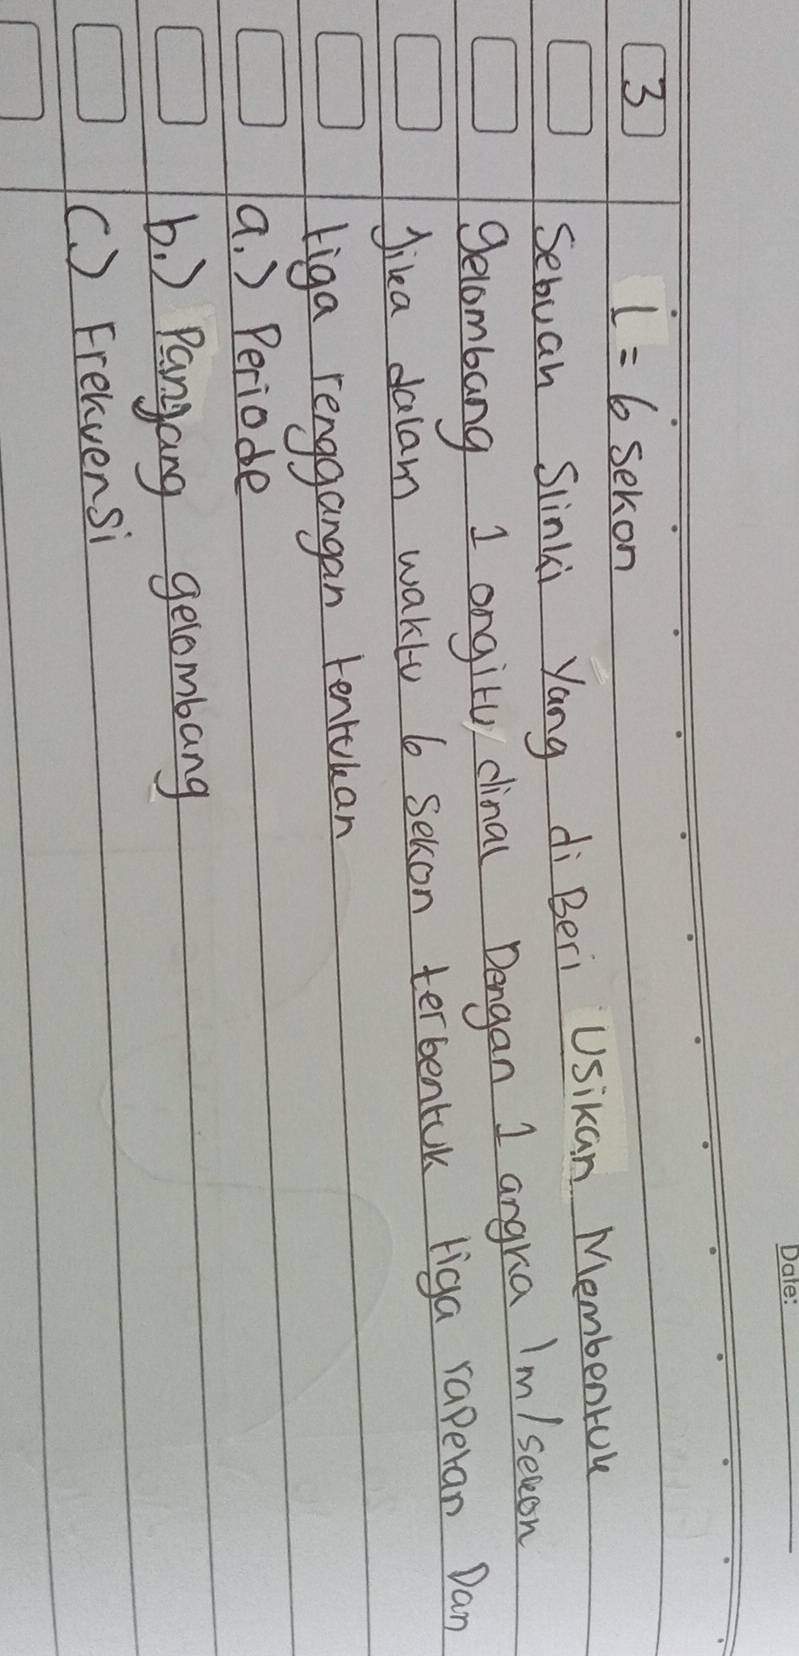 Date:
3 i = 6 sekon
Sebuah Slinki Yang diBeri Usikan Membentuk
gelombang 1 ongitu dinal Dengan 1 angka 1 m/sekon
Jika dalam waktu 6 sekon terbentuk tiga rapetan Dan
tiga renggangan tentukan
a.) Periode
b.) Panjang gelombang
c.) Frekuensi